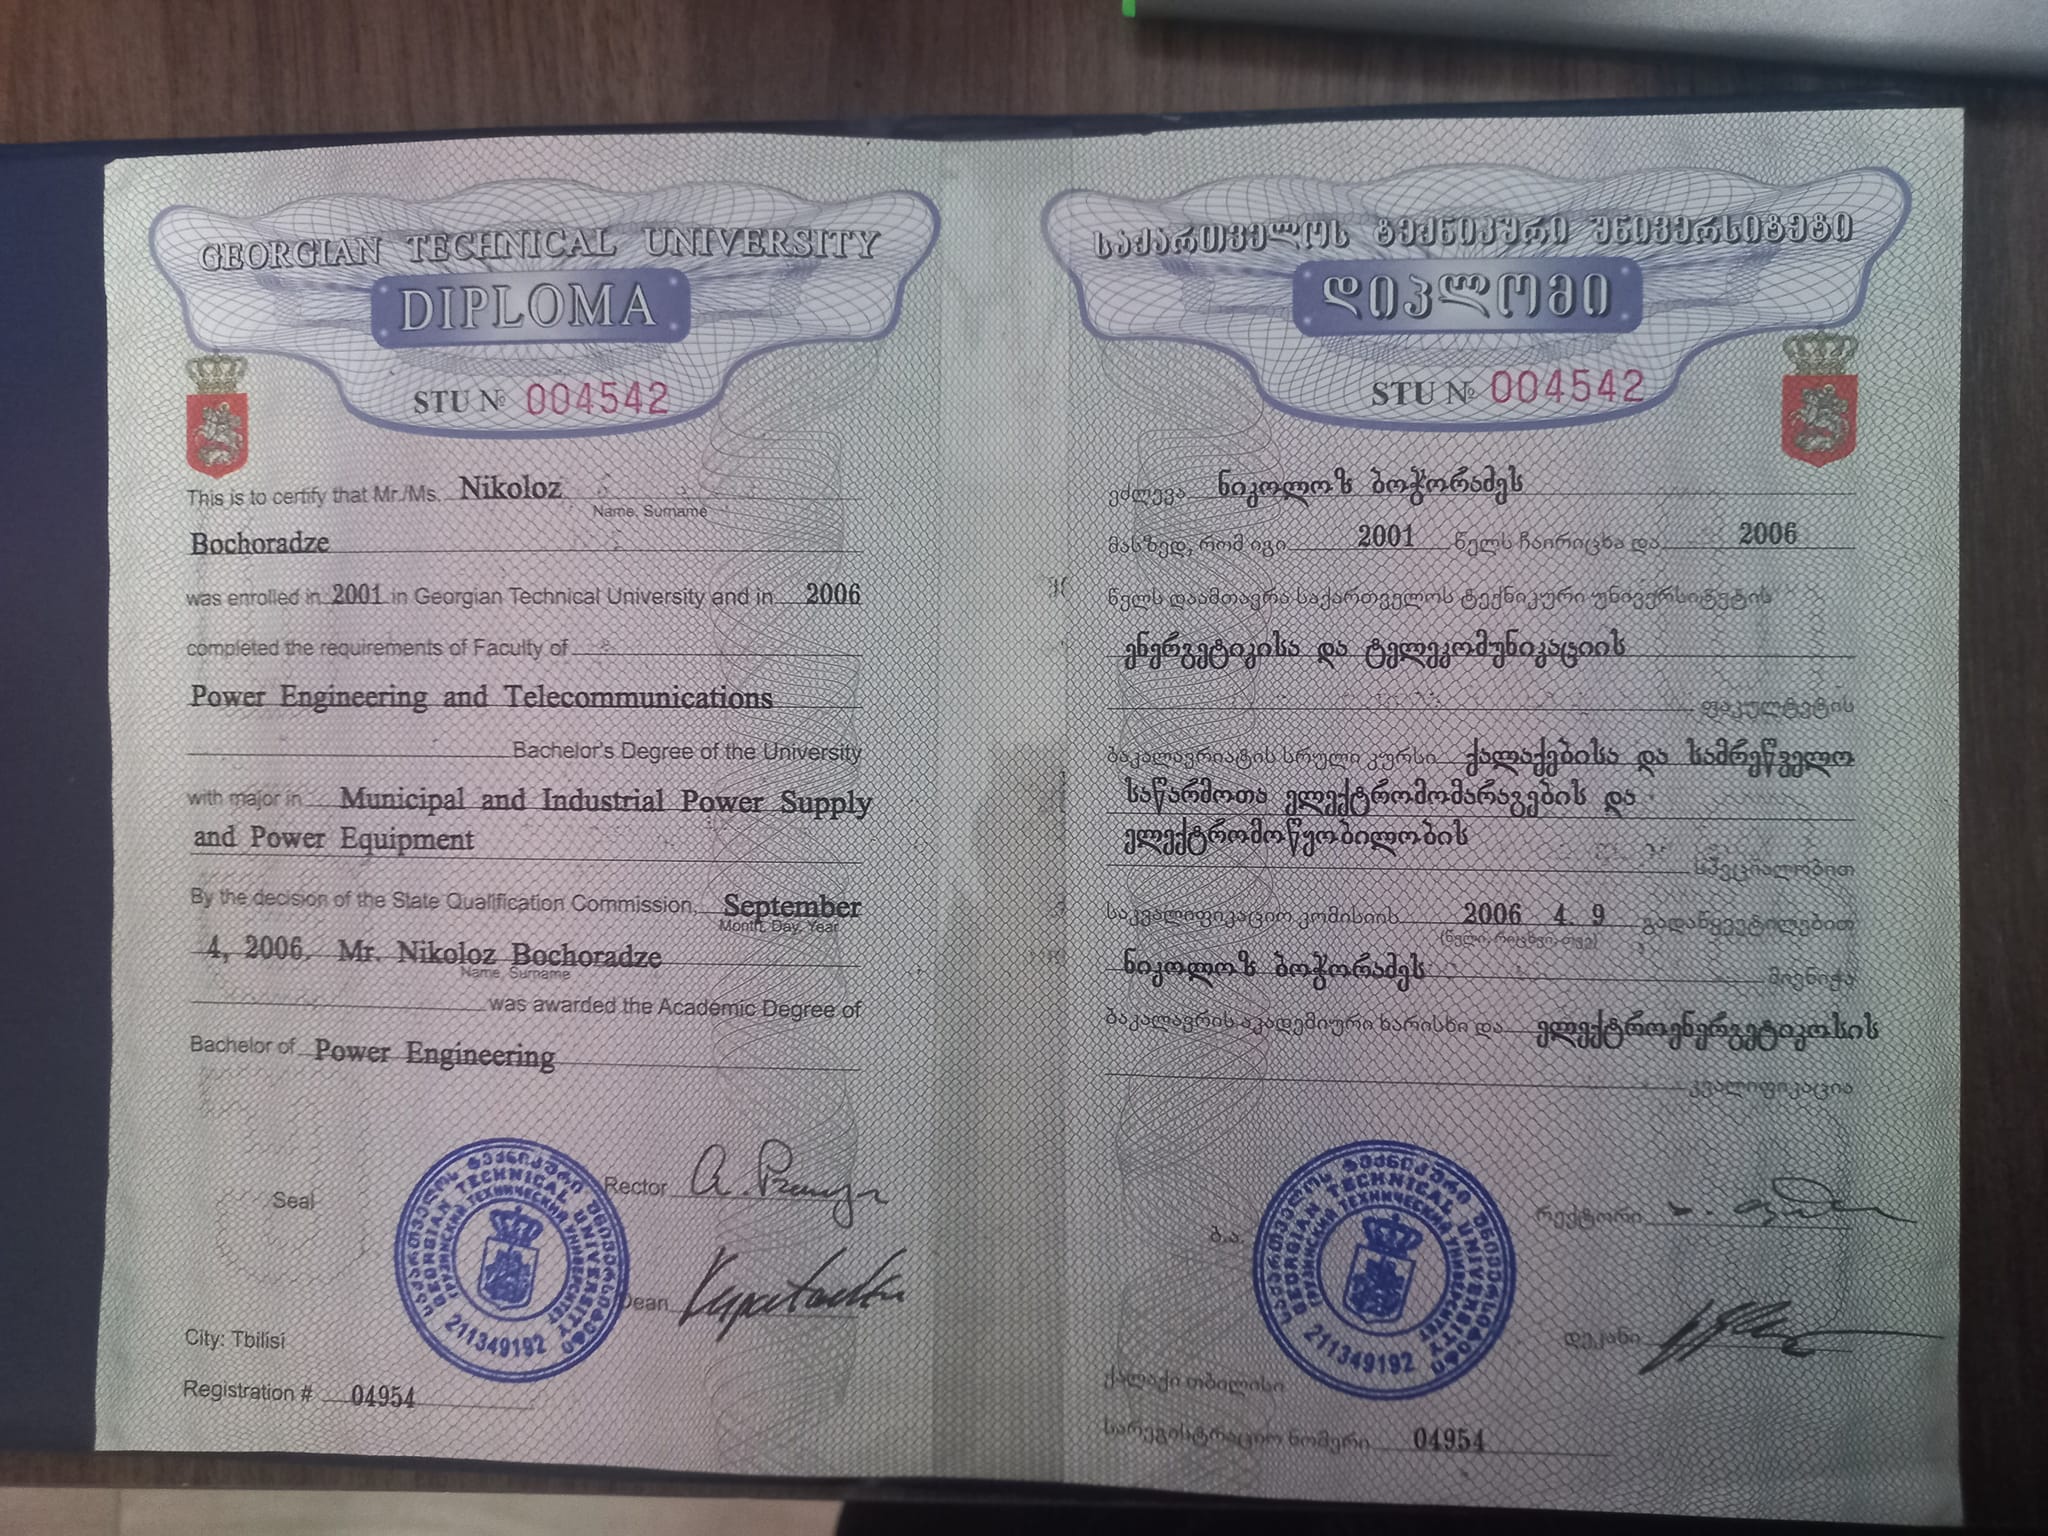 GEORGIAN TECHNICAL UNIVERSITY
DIPLOMA
STU № 004542
This is to certify that Mr./Ms. Nikoloz
Name, Surname
Bochoradze
was enrolled in 2001 in Georgian Technical University and in 2006
completed the requirements of Faculty of
Power Engineering and Telecommunications
Bachelor's Degree of the University
with major in Municipal and Industrial Power Supply
and Power Equipment
By the decision of the State Qualification Commission, September
Month, Day, Year
4, 2006, Mr. Nikoloz Bochoradze
Name, Surname
was awarded the Academic Degree of
Bachelor of Power Engineering
Seal
Rector
Dean
City: Tbilisi
Registration # 04954
საქართველოს ტექნიკური უნივერსიტეტი
GEORGIAN TECHNICAL UNIVERSITY
ГРУЗИНСКИЙ ТЕХНИЧЕСКИЙ УНИВЕРСИТЕТ
211349192
საქართველოს ტექნიკური უნივერსიტეტი
დიპლომი
STU № 004542
ეძლევა ნიკოლოზ ბოჭორაძეს
მასზედ, რომ იგი 2001 წელს ჩაირიცხა და 2006
წელს დაამთავრა საქართველოს ტექნიკური უნივერსიტეტის
ენერგეტიკისა და ტელეკომუნიკაციის
ფაკულტეტის
ბაკალავრიატის სრული კურსი ქალაქებისა და სამრეწველო
საწარმოთა ელექტრომომარაგების და
ელექტრომოწყობილობის
სპეციალობით
საკვალიფიკაციო კომისიის 2006 4. 9 გადაწყვეტილებით
(წელი, რიცხვი, თვე)
ნიკოლოზ ბოჭორაძეს მიენიჭა
ბაკალავრის აკადემიური ხარისხი და ელექტროენერგეტიკოსის
კვალიფიკაცია
ბ.ა.
რექტორი
დეკანი
ქალაქი თბილისი
სარეგისტრაციო ნომერი 04954
საქართველოს ტექნიკური უნივერსიტეტი
GEORGIAN TECHNICAL UNIVERSITY
ГРУЗИНСКИЙ ТЕХНИЧЕСКИЙ УНИВЕРСИТЕТ
211349192